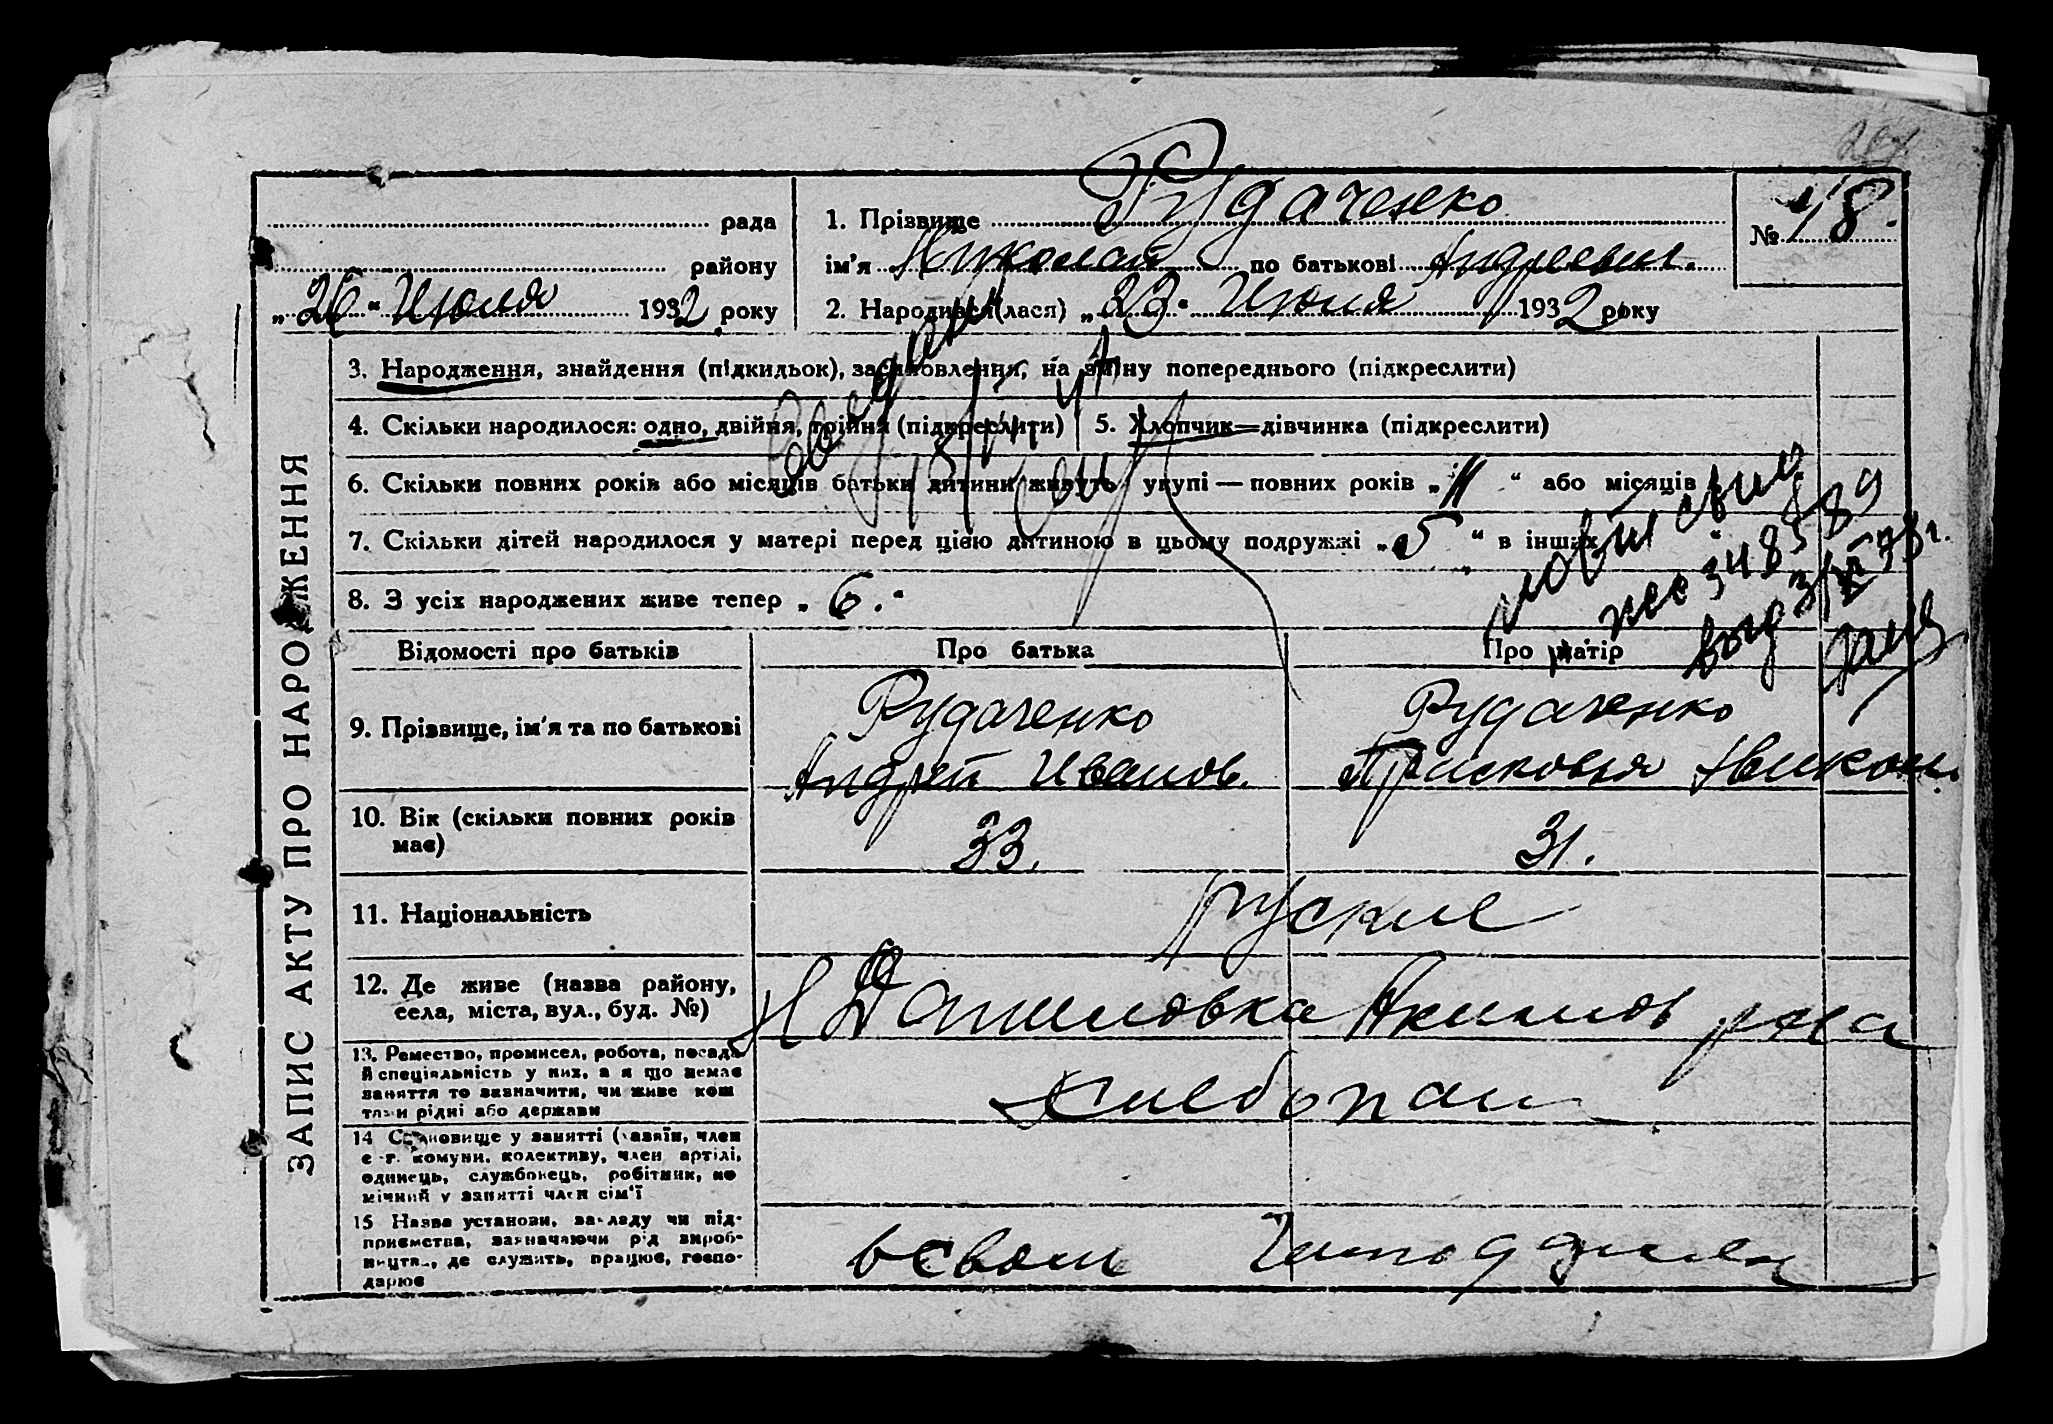 рада
1. Прізвище Рудаченко
№ 18.
району
ім'я Николай по батькові Андреевич.
„26“ Июля 1932 року
2. Народився(лася) „23“ Июля 1932 року
ЗАПИС АКТУ ПРО НАРОДЖЕННЯ
3. Народження, знайдення (підкидьок), засиновлення, на зміну попереднього (підкреслити)
4. Скільки народилося: одно, двійня, трійня (підкреслити)
5. Хлопчик—дівчинка (підкреслити)
6. Скільки повних років або місяців батьки дитини живуть укупі — повних років „11“ або місяців
7. Скільки дітей народилося у матері перед цією дитиною в цьому подружжі „5“ в інших
8. З усіх народжених живе тепер „6.“
Відомості про батьків
Про батька
Про матір
9. Прізвище, ім'я та по батькові
Рудаченко
Андрей Иванов.
Рудаченко
Присковья
10. Вік (скільки повних років має)
33.
31.
11. Національність
руские
12. Де живе (назва району, села, міста, вул., буд. №)
Н Даниловка Акимов р-на
13. Ремество, промисел, робота, посада й спеціяльність у них, а я що немає заняття то зазначити, чи живе кош тами рідні або держави
хлебопаш
14 Становище у занятті (хазяїн, член с.-г. комуни, колективу, член артілі, одинець, службовець, робітник, помічний у занятті член сім'ї
15 Назва установи, закладу чи підприємства, зазначаючи рід виробництва, де служить, працює, господарює
в своем